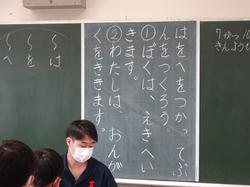 7がつ10
きんよう
はをへをつかって、ぶ
んをつくろう。
①ぼくは、えきへい
きます。
②わたしは、おんが
くをききます。
〜は
〜を
〜へ